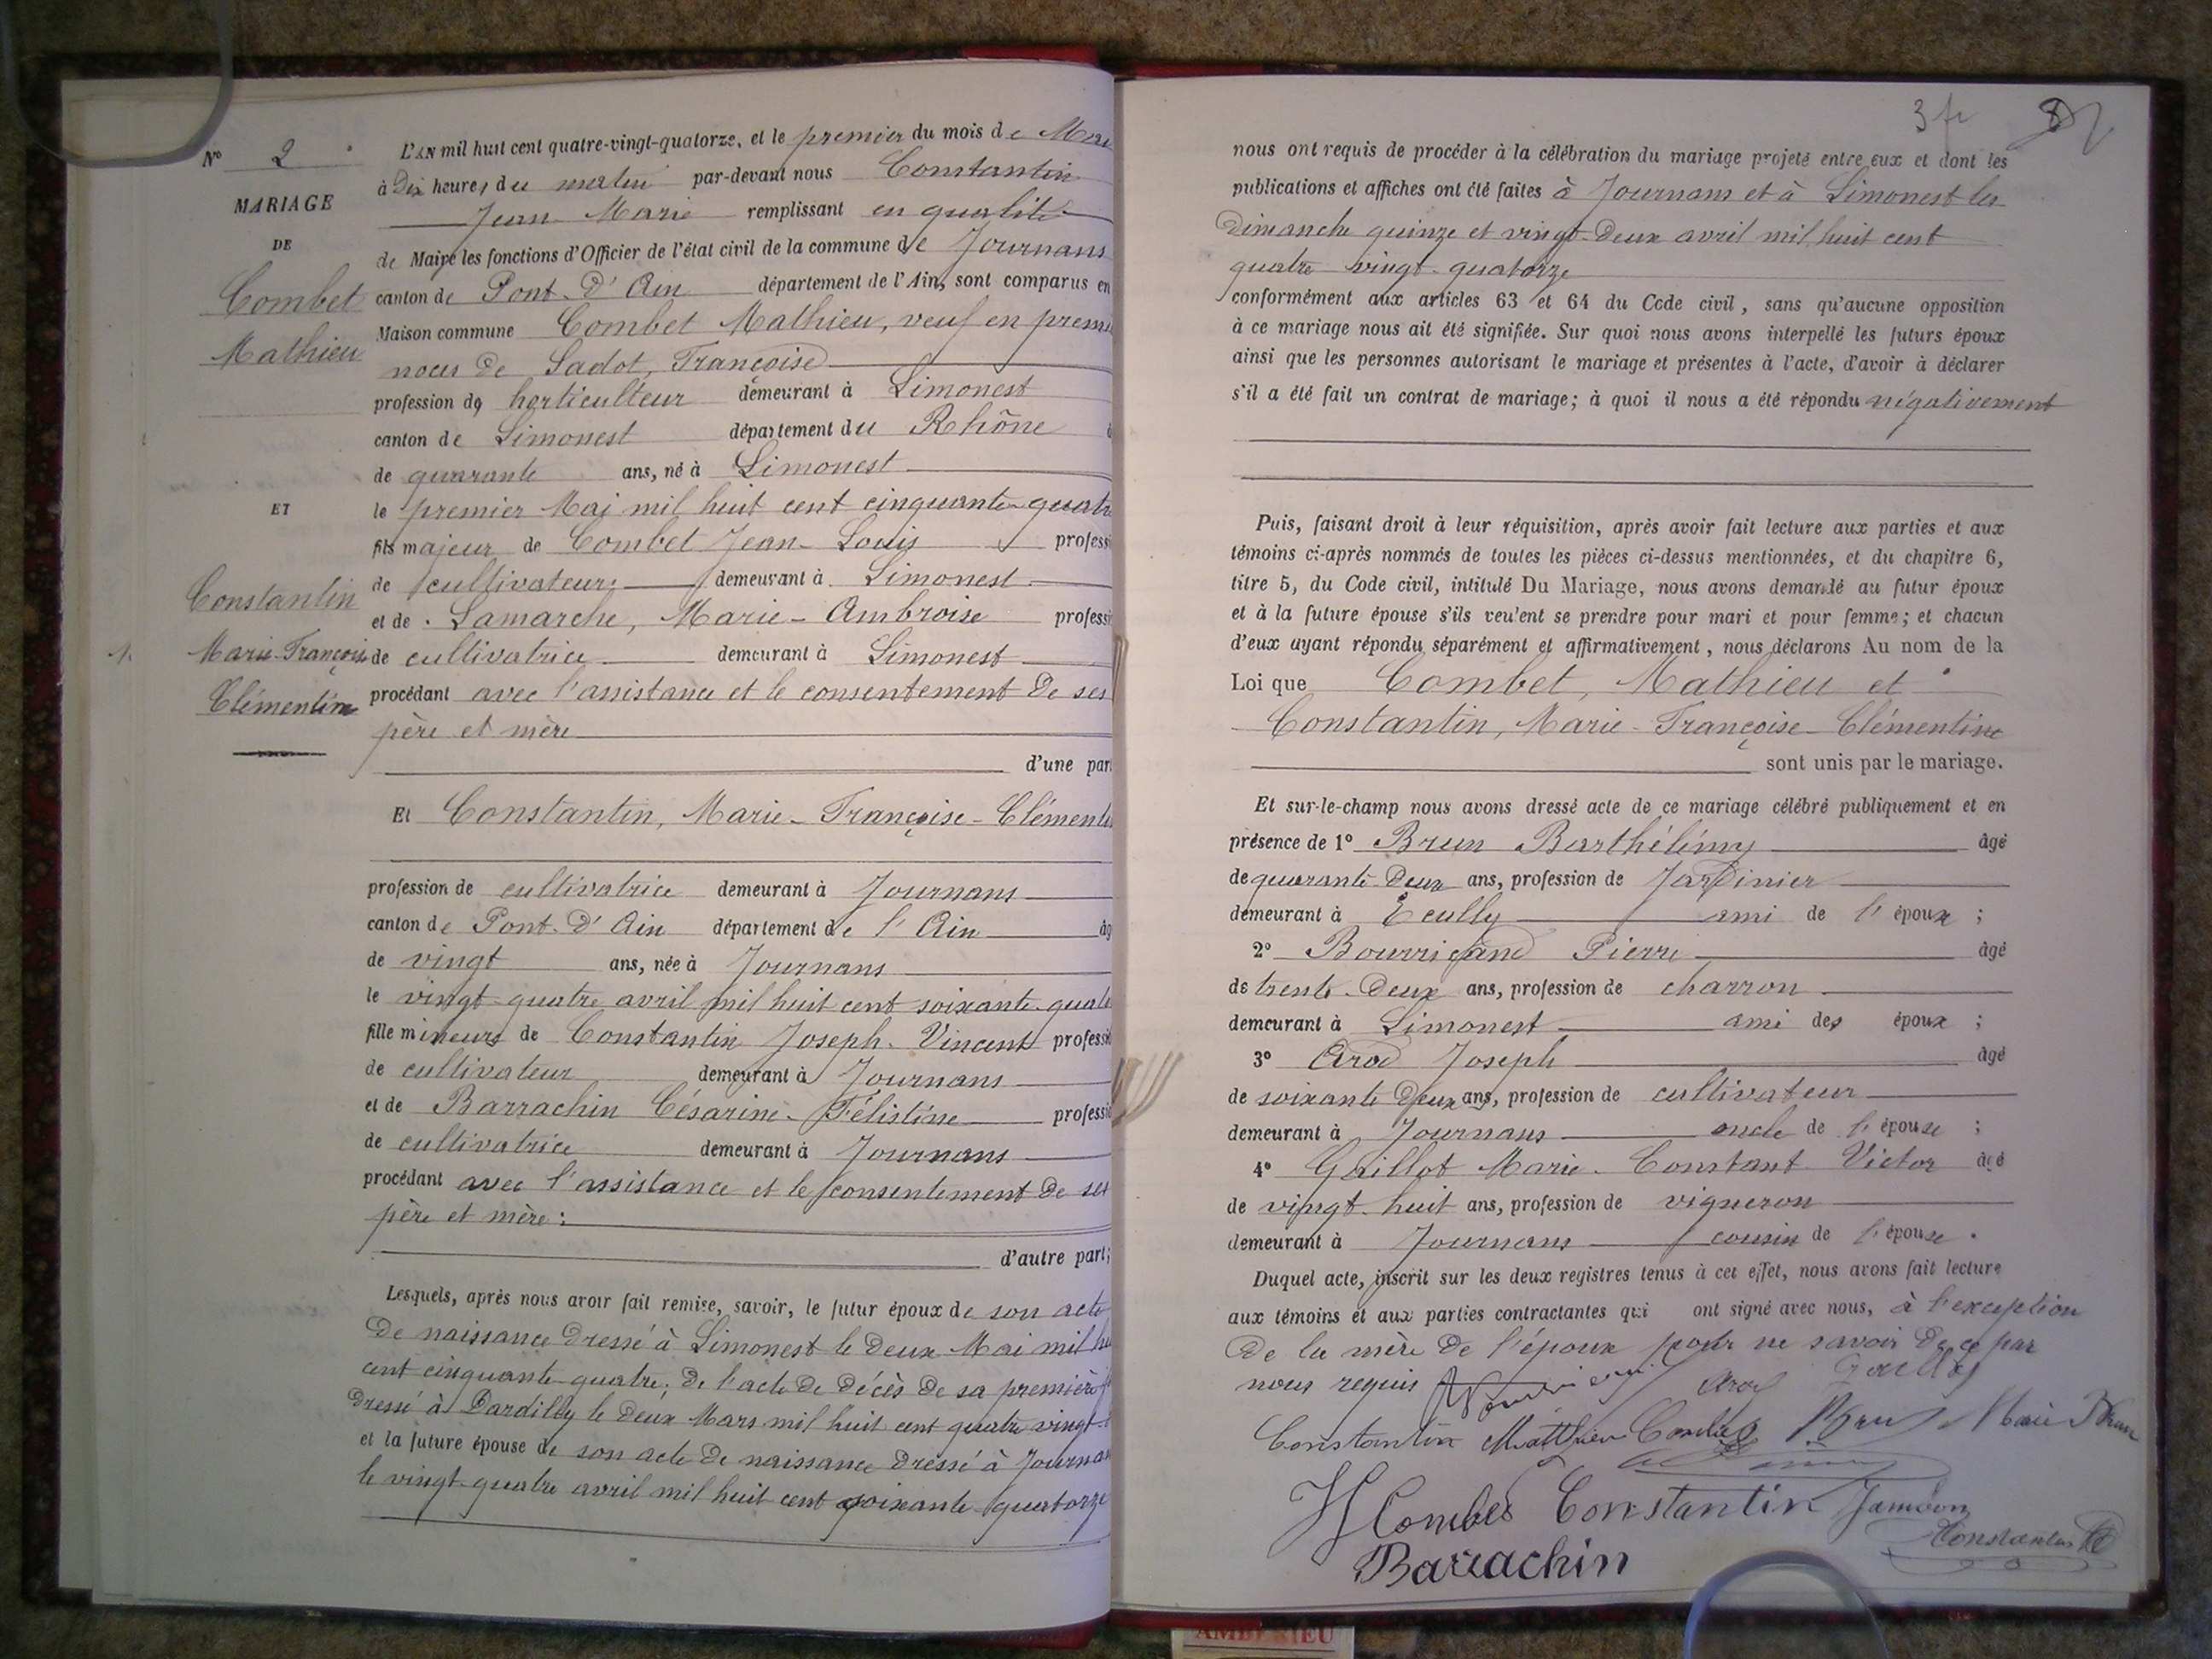 N° 2
MARIAGE
DE
Combet
Mathieu
ET
Constantin
Marie-Françoise
Clémentine
L'AN mil huit cent quatre-vingt-quatorze, et le premier du mois de Mai
à Dix heures du matin par-devant nous Constantin
Jean Marie remplissant en qualité
de Maire les fonctions d'Officier de l'état civil de la commune de Journans
canton de Pont-d'Ain département de l'Ain, sont comparus en
Maison commune Combet Mathieu, veuf en premi
noces de Sadot, Françoise
profession de horticulteur demeurant à Limonest
canton de Limonest département du Rhône
de quarante ans, né à Limonest
le premier Mai mil huit cent cinquante-quatr
fils majeur de Combet Jean-Louis professi
de cultivateur demeurant à Limonest
et de Lamarche, Marie-Ambroise professi
de cultivatrice demeurant à Limonest
procédant avec l'assistance et le consentement de ses
père et mère
d'une par
Et Constantin, Marie-Françoise-Clémenti
profession de cultivatrice demeurant à Journans
canton de Pont-d'Ain département de l'Ain âg
de vingt ans, née à Journans
le vingt-quatre avril mil huit cent soixante-quato
fille mineure de Constantin Joseph-Vincent professi
de cultivateur demeurant à Journans
et de Barrachin Césarine-Félistine professi
de cultivatrice demeurant à Journans
procédant avec l'assistance et le consentement de ses
père et mère :
d'autre part;
Lesquels, après nous avoir fait remise, savoir, le futur époux de son acte
de naissance dressé à Limonest le deux Mai mil hu
cent cinquante-quatre; de l'acte de décès de sa première
dressé à Dardilly le deux Mars mil huit cent quatre vingt
et la future épouse de son acte de naissance dressé à Journan
le vingt-quatre avril mil huit cent soixante-quatorze
3 fr
nous ont requis de procéder à la célébration du mariage projeté entre eux et dont les
publications et affiches ont été faites à Journans et à Limonest les
Dimanche quinze et vingt-deux avril mil huit cent
quatre-vingt-quatorze
conformément aux articles 63 et 64 du Code civil, sans qu'aucune opposition
à ce mariage nous ait été signifiée. Sur quoi nous avons interpellé les futurs époux
ainsi que les personnes autorisant le mariage et présentes à l'acte, d'avoir à déclarer
s'il a été fait un contrat de mariage; à quoi il nous a été répondu négativement
Puis, faisant droit à leur réquisition, après avoir fait lecture aux parties et aux
témoins ci-après nommés de toutes les pièces ci-dessus mentionnées, et du chapitre 6,
titre 5, du Code civil, intitulé Du Mariage, nous avons demandé au futur époux
et à la future épouse s'ils veulent se prendre pour mari et pour femme; et chacun
d'eux ayant répondu séparément et affirmativement, nous déclarons Au nom de la
Loi que Combet, Mathieu et
Constantin, Marie-Françoise-Clémentine
sont unis par le mariage.
Et sur-le-champ nous avons dressé acte de ce mariage célébré publiquement et en
présence de 1° Brun Barthélémy âgé
de quarante-deux ans, profession de Jardinier
demeurant à Ecully ami de l'époux ;
2° Bourricand Pierre âgé
de trente-deux ans, profession de charron
demeurant à Limonest ami des époux ;
3° Arod Joseph âgé
de soixante deux ans, profession de cultivateur
demeurant à Journans oncle de l'épouse ;
4° Guillot Marie-Constant-Victor âgé
de vingt-huit ans, profession de vigneron
demeurant à Journans cousin de l'épouse.
Duquel acte, inscrit sur les deux registres tenus à cet effet, nous avons fait lecture
aux témoins et aux parties contractantes qui ont signé avec nous, à l'exception
de la mère de l'époux pour ne savoir de ce par
nous requis Arod
Constantin Matthieu Combet Brun Marie Brun
Combet Constantin Jambon
Constantin
Barrachin
AMBÉRIEU